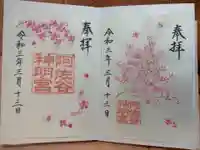 奉拝
阿佐谷
神明宮
令和三年三月十三日
奉拝
令和三年三月十三日